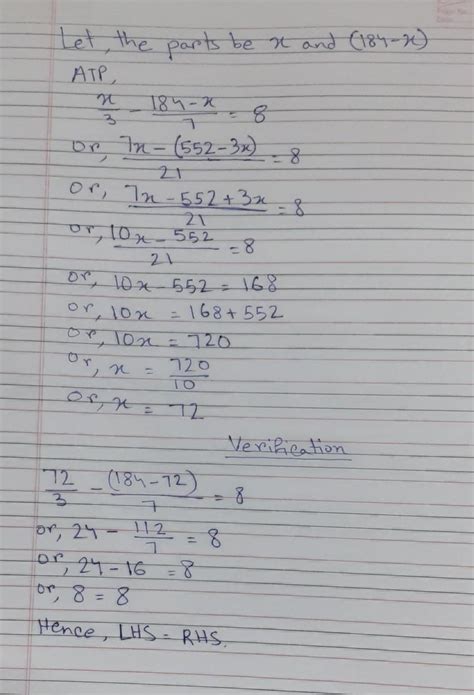 Let, the parts be x and (184-x)
ATP,
x/3 - 184-x/7 = 8
or, 7x-(552-3x)/21 = 8
or, 7x-552+3x/21 = 8
or, 10x-552/21 = 8
or, 10x-552 = 168
or, 10x = 168+552
or, 10x = 720
or, x = 720/10
or, x = 72
Verification
72/3 - (184-72)/7 = 8
or, 24 - 112/7 = 8
or, 24-16 = 8
or, 8 = 8
Hence, LHS = RHS.